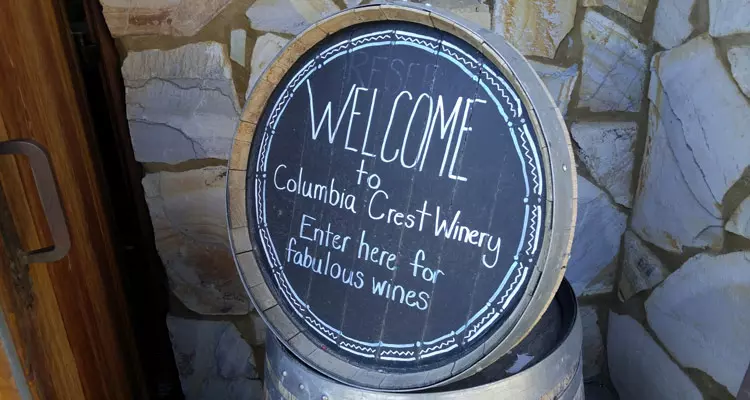 WELCOME
to
Columbia Crest Winery
Enter here for
fabulous wines